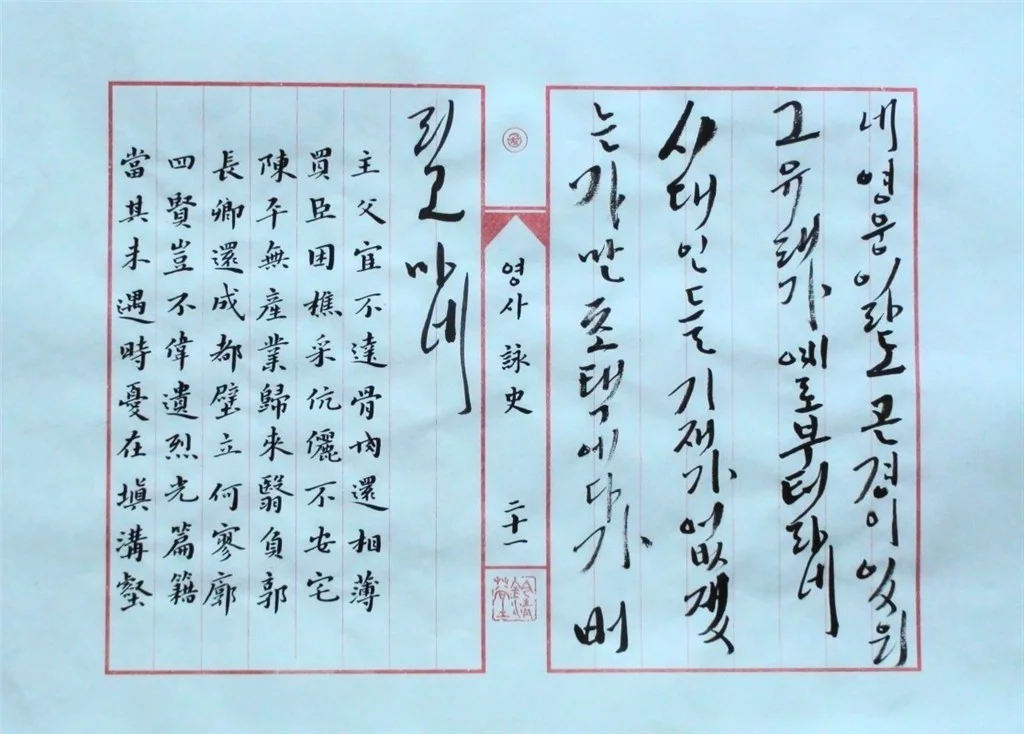 네 영웅이라도 곤경이 있으니
그 유래가 예로부터라네
시대인들 기재가 없겠
는가만 초택에다가 버
리고 마네
영사 詠史 二十一
主父宦不達骨肉還相薄
買臣困樵采伉儷不安宅
陳平無産業歸來翳負郭
長卿還成都壁立何寥廓
四賢豈不偉遺烈光篇籍
當其未遇時憂在塡溝壑